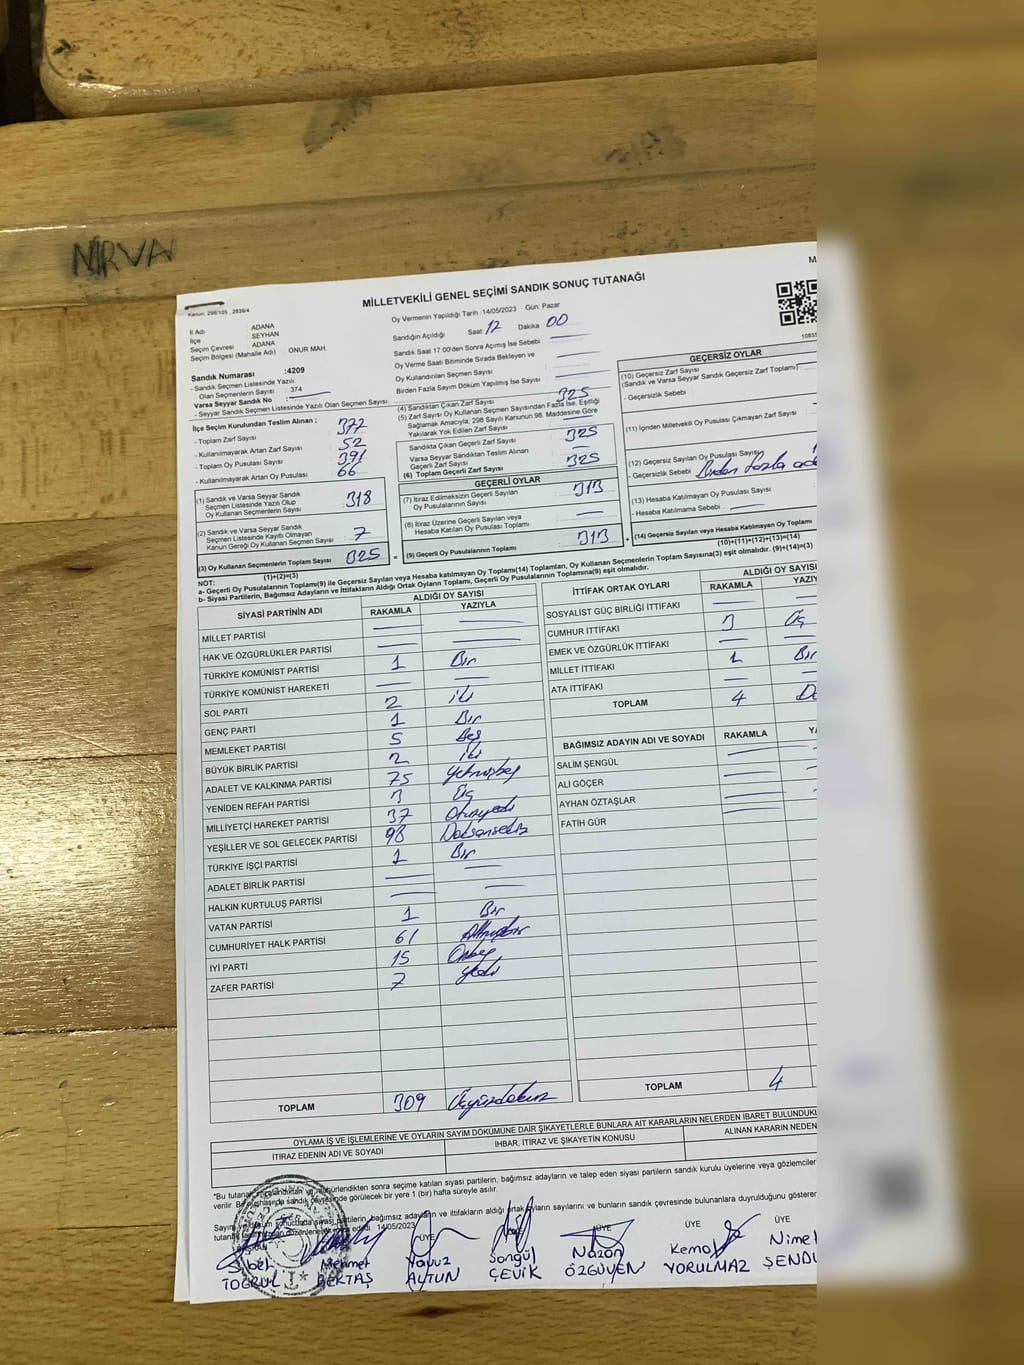 NIRVA
MİLLETVEKİLİ GENEL SEÇİMİ SANDIK SONUÇ TUTANAĞI
Kanun: 298/105 , 2839/4
Oy Vermenin Yapıldığı Tarih :14/05/2023 Gün: Pazar
İl Adı ADANA
İlçe SEYHAN
Seçim Çevresi ADANA
Seçim Bölgesi (Mahalle Adı) ONUR MAH.
Sandığın Açıldığı Saat 17 Dakika 00
Sandık Saat 17.00'den Sonra Açılmış İse Sebebi :
Oy Verme Saati Bitiminde Sırada Bekleyen ve
Oy Kullandırılan Seçmen Sayısı
Birden Fazla Sayım Döküm Yapılmış İse Sayısı
Sandık Numarası :4209
- Sandık Seçmen Listesinde Yazılı
Olan Seçmenlerin Sayısı : 374
Varsa Seyyar Sandık No :
- Seyyar Sandık Seçmen Listesinde Yazılı Olan Seçmen Sayısı :
İlçe Seçim Kurulundan Teslim Alınan ;
- Toplam Zarf Sayısı : 377
- Kullanılmayarak Artan Zarf Sayısı : 52
- Toplam Oy Pusulası Sayısı : 391
- Kullanılmayarak Artan Oy Pusulası : 66
(1) Sandık ve Varsa Seyyar Sandık
Seçmen Listesinde Yazılı Olup
Oy Kullanan Seçmenlerin Sayısı : 318
(2) Sandık ve Varsa Seyyar Sandık
Seçmen Listesinde Kayıtlı Olmayan
Kanun Gereği Oy Kullanan Seçmen Sayısı : 7
(3) Oy Kullanan Seçmenlerin Toplam Sayısı : 325
(1)+(2)=(3)
(4) Sandıktan Çıkan Zarf Sayısı : 325
(5) Zarf Sayısı Oy Kullanan Seçmen Sayısından Fazla İse, Eşitliği
Sağlamak Amacıyla; 298 Sayılı Kanunun 98. Maddesine Göre
Yakılarak Yok Edilen Zarf Sayısı
Sandıkta Çıkan Geçerli Zarf Sayısı : 325
Varsa Seyyar Sandıktan Teslim Alınan
Geçerli Zarf Sayısı
(6) Toplam Geçerli Zarf Sayısı : 325
GEÇERLİ OYLAR
(7) İtiraz Edilmeksizin Geçerli Sayılan
Oy Pusulalarının Sayısı : 313
(8) İtiraz Üzerine Geçerli Sayılan veya
Hesaba Katılan Oy Pusulası Toplamı :
(9) Geçerli Oy Pusulalarının Toplamı : 313
GEÇERSİZ OYLAR
(10) Geçersiz Zarf Sayısı
(Sandık ve Varsa Seyyar Sandık Geçersiz Zarf Toplamı) :
- Geçersizlik Sebebi :
(11) İçinden Milletvekili Oy Pusulası Çıkmayan Zarf Sayısı
(12) Geçersiz Sayılan Oy Pusulası Sayısı
- Geçersizlik Sebebi : Birden fazla
(13) Hesaba Katılmayan Oy Pusulası Sayısı
- Hesaba Katılmama Sebebi :
(14) Geçersiz Sayılan veya Hesaba Katılmayan Oy Toplamı
(10)+(11)+(12)+(13)=(14)
NOT:
a- Geçerli Oy Pusulalarının Toplamı(9) ile Geçersiz Sayılan veya Hesaba katılmayan Oy Toplamı(14) Toplamları, Oy Kullanan Seçmenlerin Toplam Sayısına(3) eşit olmalıdır. (9)+(14)=(3)
b- Siyasi Partilerin, Bağımsız Adayların ve İttifakların Aldığı Ortak Oyların Toplamı, Geçerli Oy Pusulalarının Toplamına(9) eşit olmalıdır.
SİYASİ PARTİNİN ADI ALDIĞI OY SAYISI
RAKAMLA YAZIYLA
MİLLET PARTİSİ
HAK VE ÖZGÜRLÜKLER PARTİSİ
TÜRKİYE KOMÜNİST PARTİSİ 1 Bir
TÜRKİYE KOMÜNİST HAREKETİ
SOL PARTİ 2 iki
GENÇ PARTİ 1 Bir
MEMLEKET PARTİSİ 5 Beş
BÜYÜK BİRLİK PARTİSİ 2 iki
ADALET VE KALKINMA PARTİSİ 75 Yetmişbeş
YENİDEN REFAH PARTİSİ 3 Üç
MİLLİYETÇİ HAREKET PARTİSİ 37 Otuzyedi
YEŞİLLER VE SOL GELECEK PARTİSİ 98 Doksansekiz
TÜRKİYE İŞÇİ PARTİSİ 1 Bir
ADALET BİRLİK PARTİSİ
HALKIN KURTULUŞ PARTİSİ
VATAN PARTİSİ 1 Bir
CUMHURİYET HALK PARTİSİ 61 Altmışbir
İYİ PARTİ 15 Onbeş
ZAFER PARTİSİ 7 Yedi
TOPLAM 309 Üçyüzdokuz
İTTİFAK ORTAK OYLARI ALDIĞI OY SAYISI
RAKAMLA YAZIY
SOSYALİST GÜÇ BİRLİĞİ İTTİFAKI
CUMHUR İTTİFAKI 3 Üç
EMEK VE ÖZGÜRLÜK İTTİFAKI
MİLLET İTTİFAKI 1 Bir
ATA İTTİFAKI
TOPLAM 4 Dö
BAĞIMSIZ ADAYIN ADI VE SOYADI RAKAMLA
SALİM ŞENGÜL
ALİ GÖÇER
AYHAN ÖZTAŞLAR
FATİH GÜR
TOPLAM 4
OYLAMA İŞ VE İŞLEMLERİNE VE OYLARIN SAYIM DÖKÜMÜNE DAİR ŞİKAYETLERLE BUNLARA AİT KARARLARIN NELERDEN İBARET BULUNDUKL
İTİRAZ EDENİN ADI VE SOYADI İHBAR, İTİRAZ VE ŞİKAYETİN KONUSU ALINAN KARARIN NEDEN
siyasi partilerin, bağımsız adayların ve talep eden siyasi partilerin sandık kurulu üyelerine veya gözlemciler
görülecek bir yere 1 (bir) hafta süreyle asılır.
bağımsız adayların ve ittifakların aldığı ortak oyların sayılarını ve bunların sandık çevresinde bulunanlara duyurulduğunu gösteren
14/05/2023
ÜYE ÜYE ÜYE ÜYE
Sibel TOĞRUL
Mehmet BEKTAŞ
Yavuz ALTUN
Songül ÇEVİK
Nazan ÖZGÜVEN
Kemal YORULMAZ
Nimet ŞENDU